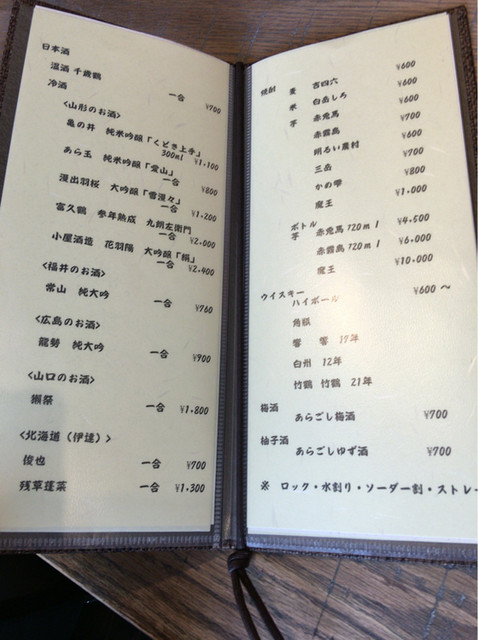 日本酒
温酒 千歳鶴 一合 ¥700
冷酒
<山形のお酒>
亀の井 純米吟醸「くどき上手」
300ml ¥1,100
あら玉 純米吟醸「愛山」
一合 ¥800
澄出羽桜 大吟醸「雪漫々」
一合 ¥1,200
富久鶴 参年熟成 九朗左衛門
一合 ¥2,000
小屋酒造 花羽陽 大吟醸「絹」
一合 ¥2,400
<福井のお酒>
常山 純大吟 一合 ¥760
<広島のお酒>
龍勢 純大吟 一合 ¥900
<山口のお酒>
獺祭 一合 ¥1,800
<北海道(伊達)>
俊也 一合 ¥700
残草蓬莱 一合 ¥1,300
焼酎 麦 吉四六 ¥600
米 白岳しろ ¥600
芋 赤兎馬 ¥700
赤霧島 ¥600
明るい農村 ¥700
三岳 ¥800
かめ雫 ¥1,000
魔王
ボトル
芋 赤兎馬 720ml ¥4,500
赤霧島 720ml ¥6,000
魔王 ¥10,000
ウイスキー ¥600 〜
ハイボール
角瓶
響 響 17年
白州 12年
竹鶴 竹鶴 21年
梅酒
あらごし梅酒 ¥700
柚子酒
あらごしゆず酒 ¥700
※ ロック・水割り・ソーダー割・ストレー